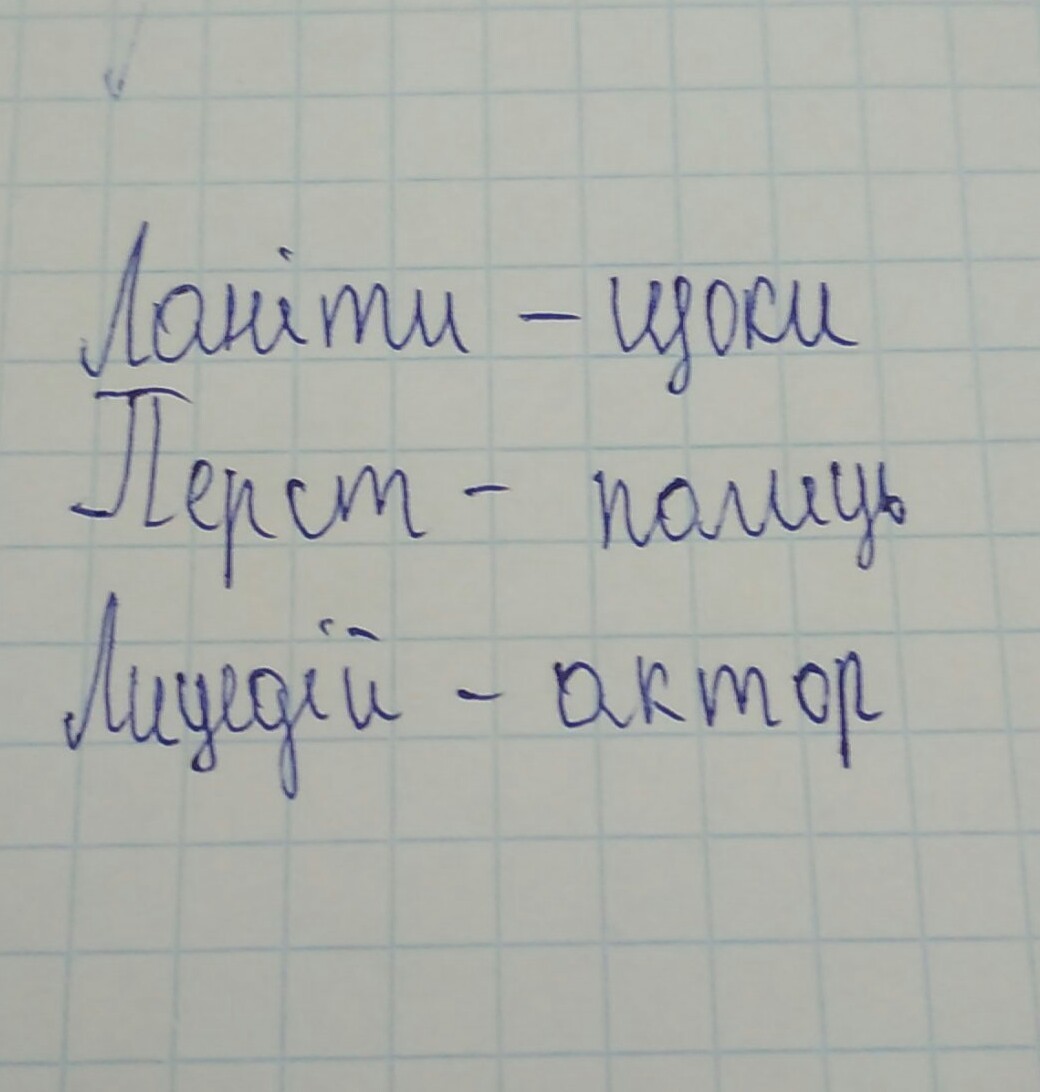 Ланіти – щоки
Перст – палець
Лицедій – актор